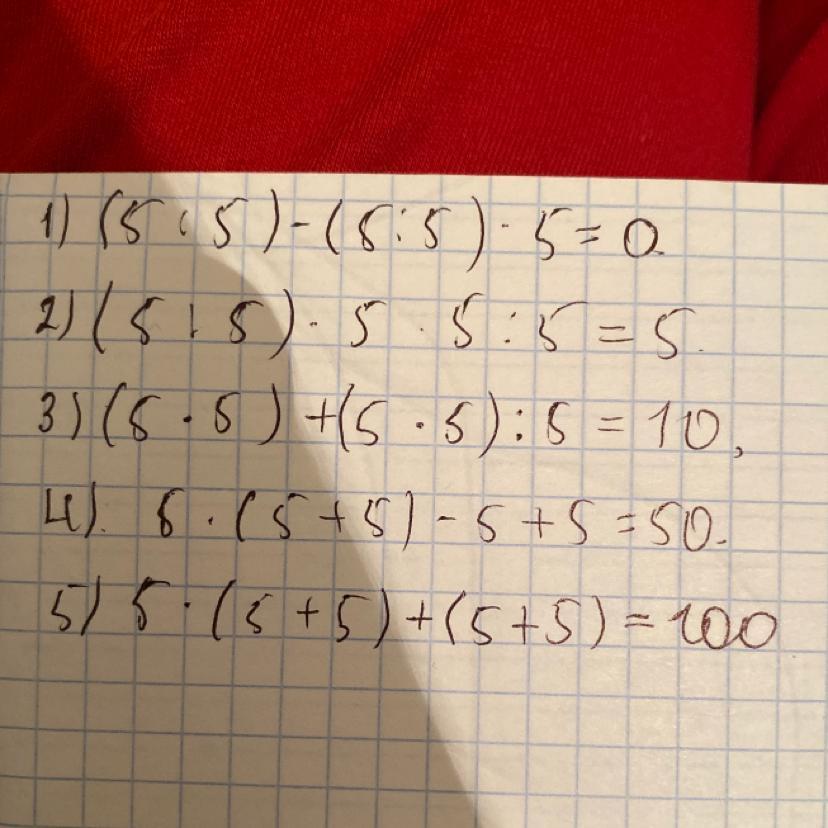 1) (5 : 5) - (5 : 5) · 5 = 0.
2) (5 : 5) · 5 · 5 : 5 = 5.
3) (5 · 5) + (5 · 5) : 5 = 10,
4). 5 · (5 + 5) - 5 + 5 = 50.
5) 5 · (5 + 5) + (5 + 5) = 100